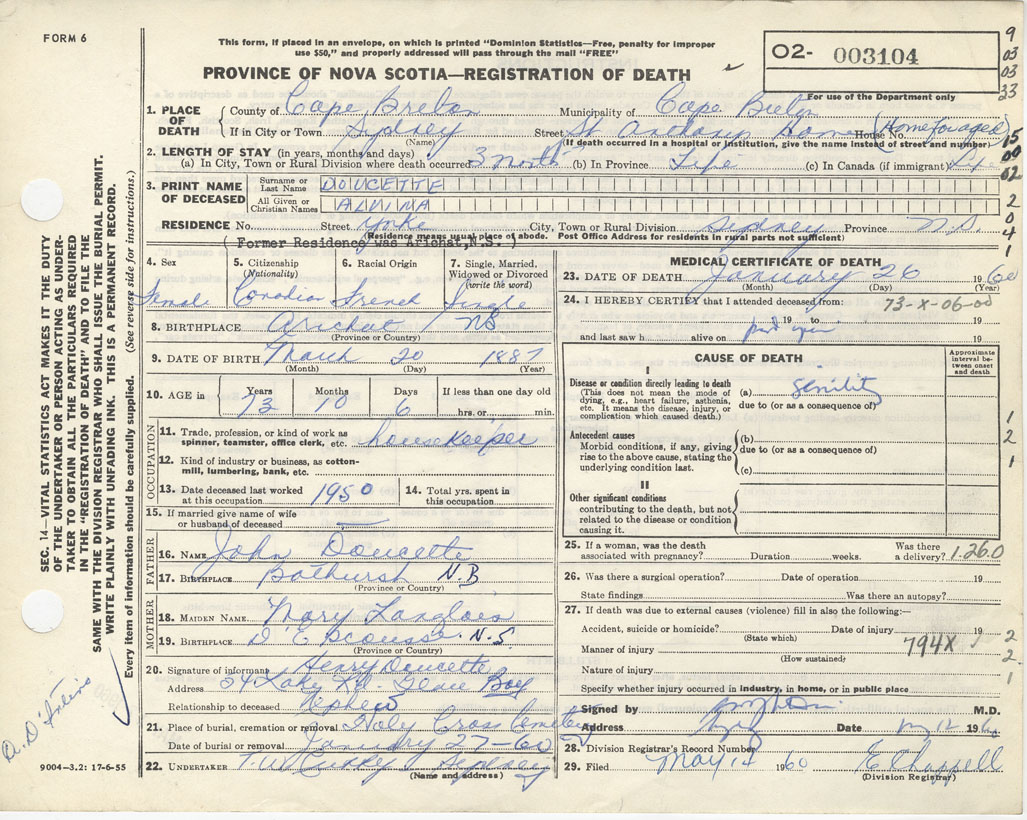 FORM 6
This form, if placed in an envelope, on which is printed "Dominion Statistics—Free, penalty for improper
use $50," and properly addressed will pass through the mail "FREE"
PROVINCE OF NOVA SCOTIA—REGISTRATION OF DEATH
02- 003104
For use of the Department only
9
03
03
33
15
00
02
2
0
4
1
1. PLACE OF DEATH
County of Cape Breton Municipality of Cape Breton
If in City or Town Sydney Street St Anthony Home House No. (Home for aged)
(Name) (If death occurred in a hospital or institution, give the name instead of street and number)
2. LENGTH OF STAY (in years, months and days)
(a) In City, Town or Rural Division where death occurred 3 month (b) In Province Life (c) In Canada (if immigrant) Life
3. PRINT NAME OF DECEASED
Surname or Last Name DOUCETTE
All Given or Christian Names ALMINA
RESIDENCE No. Street Yorke City, Town or Rural Division Sydney Province N.S.
(Residence means usual place of abode. Post Office Address for residents in rural parts not sufficient)
( Former Residence was Arichat,N.S. )
4. Sex
Female
5. Citizenship (Nationality)
Canadian
6. Racial Origin
French
7. Single, Married, Widowed or Divorced (write the word)
Single
8. BIRTHPLACE Arichat NS
(Province or Country)
9. DATE OF BIRTH March 20 1887
(Month) (Day) (Year)
10. AGE in Years Months Days If less than one day old
73 10 6 hrs. or min.
OCCUPATION
11. Trade, profession, or kind of work as spinner, teamster, office clerk, etc. housekeeper
12. Kind of industry or business, as cotton-mill, lumbering, bank, etc.
13. Date deceased last worked at this occupation 1950
14. Total yrs. spent in this occupation
15. If married give name of wife or husband of deceased —
FATHER
16. NAME John Doucette
17. BIRTHPLACE Bathurst N.B
(Province or Country)
MOTHER
18. MAIDEN NAME Mary Langlois
19. BIRTHPLACE D'Escousse N.S.
(Province or Country)
20. Signature of informant Henry Doucette
Address 54 Lake Rd. Glace Bay
Relationship to deceased Nephew
21. Place of burial, cremation or removal Holy Cross Cemetery
Date of burial or removal January 27-60
22. UNDERTAKER T. W. Curry Sydney
(Name and address)
MEDICAL CERTIFICATE OF DEATH
23. DATE OF DEATH January 26 1960
(Month) (Day) (Year)
24. I HEREBY CERTIFY that I attended deceased from:
73-X-06-00
19 to 19
and last saw h alive on 19
CAUSE OF DEATH
Approximate interval between onset and death
I
Disease or condition directly leading to death
(This does not mean the mode of dying, e.g., heart failure, asthenia, etc. It means the disease, injury, or complication which caused death.)
(a) Senility
due to (or as a consequence of)
Antecedent causes
Morbid conditions, if any, giving rise to the above cause, stating the underlying condition last.
(b)
due to (or as a consequence of)
(c)
II
Other significant conditions
contributing to the death, but not related to the disease or condition causing it.
1
2
1
25. If a woman, was the death associated with pregnancy? Duration weeks. Was there a delivery? 1.26.0
26. Was there a surgical operation? Date of operation 19
State findings Was there an autopsy?
27. If death was due to external causes (violence) fill in also the following:—
Accident, suicide or homicide? Date of injury 19
(State which)
Manner of injury 794X
(How sustained)
Nature of injury
2
2
1
Specify whether injury occurred in industry, in home, or in public place
Signed by M.D.
Address Date 12 1960
28. Division Registrar's Record Number
29. Filed May 12 1960 E Chappell
(Division Registrar)
SEC. 14—VITAL STATISTICS ACT MAKES IT THE DUTY
OF THE UNDERTAKER OR PERSON ACTING AS UNDER-
TAKER TO OBTAIN ALL THE PARTICULARS REQUIRED
IN THE "REGISTRATION OF DEATH" AND TO FILE THE
SAME WITH THE DIVISION REGISTRAR WHO SHALL ISSUE THE BURIAL PERMIT.
WRITE PLAINLY WITH UNFADING INK. THIS IS A PERMANENT RECORD.
Every item of information should be carefully supplied. (See reverse side for instructions.)
9004—3.2: 17-6-55